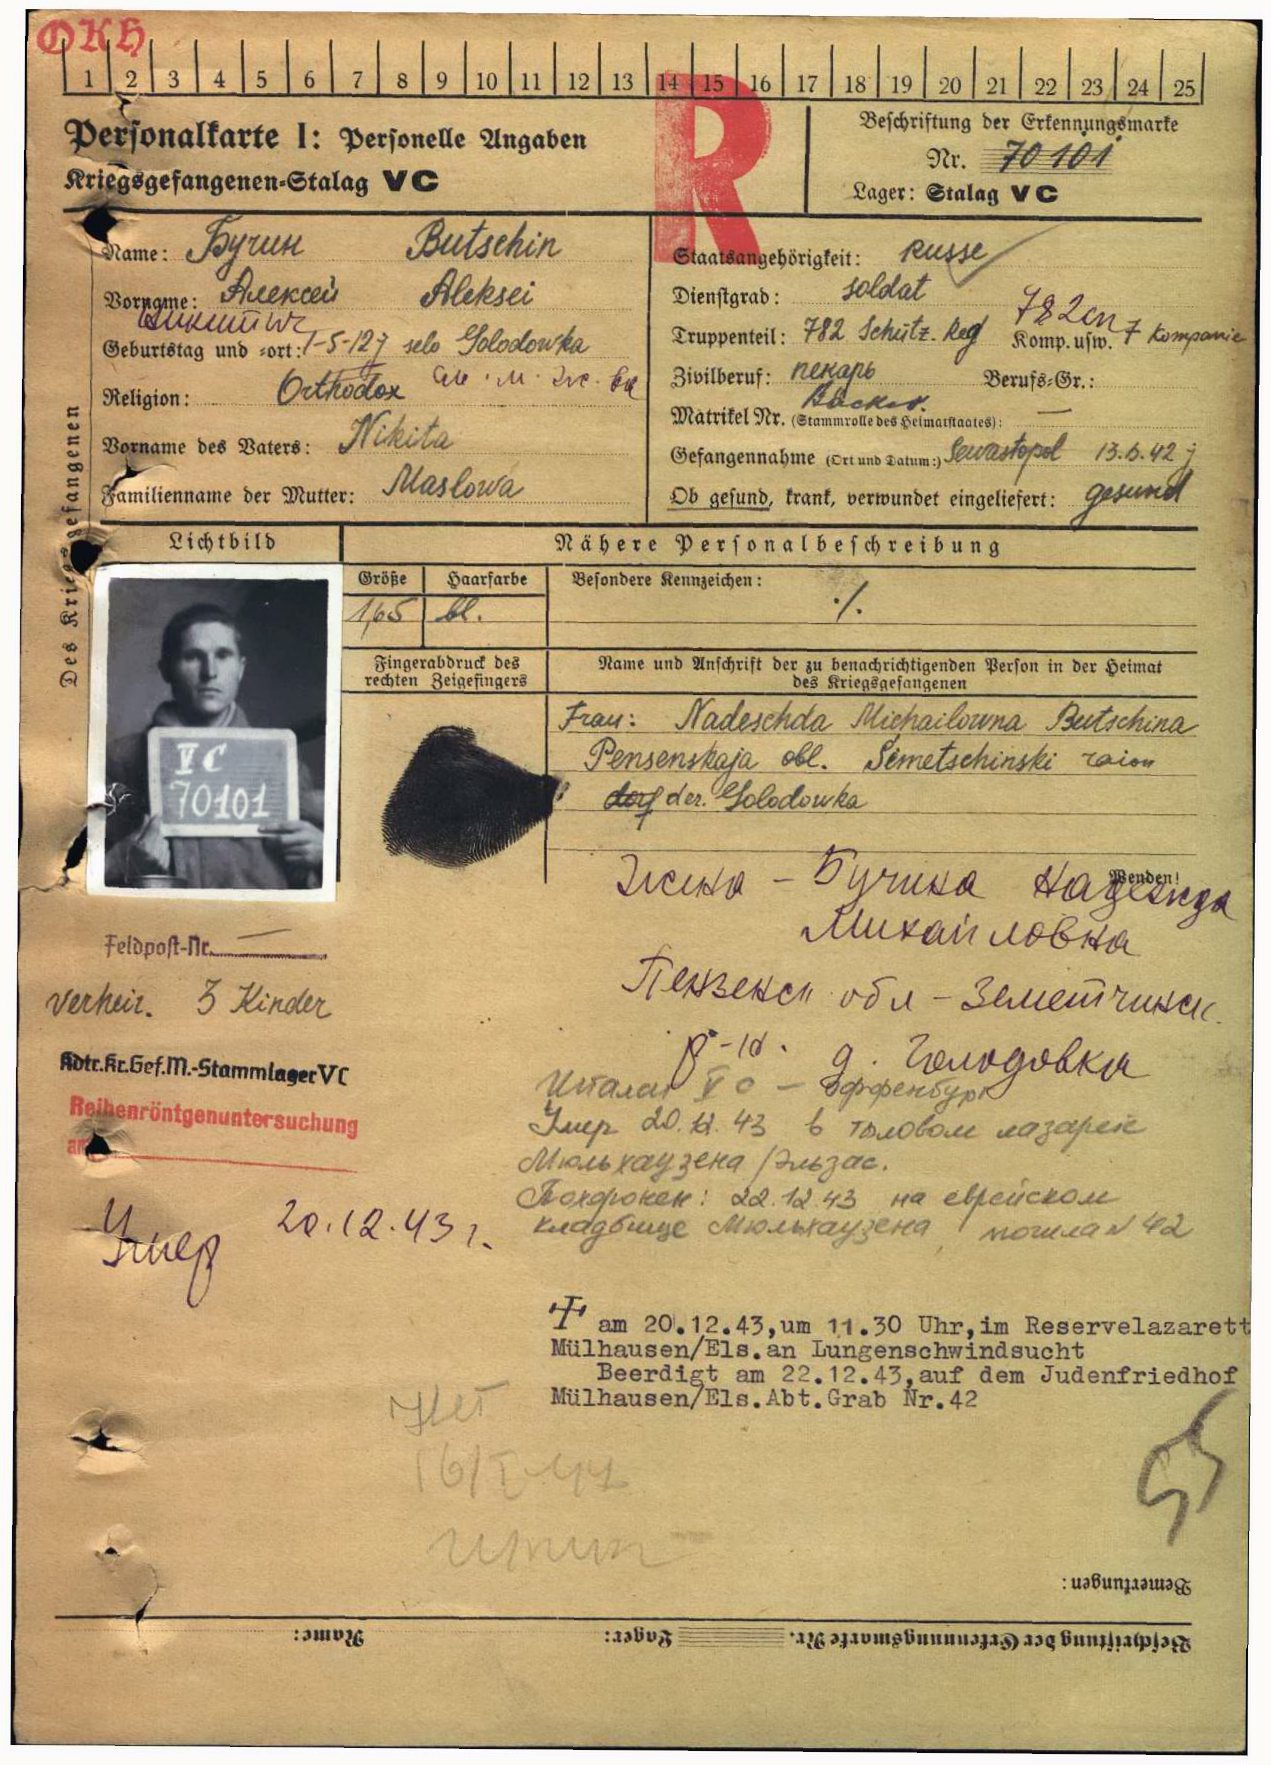 OKH
1 2 3 4 5 6 7 8 9 10 11 12 13 14 15 16 17 18 19 20 21 22 23 24 25
R
Personalkarte I: Personelle Angaben
Kriegsgefangenen-Stalag VC
Beschriftung der Erkennungsmarke
Nr. 70101
Lager: Stalag VC
Des Kriegsgefangenen
Name: Бучин Butschin
Vorname: Алексей Aleksei
Geburtstag und -ort: 1-5-12 selo Golodowka
Religion: Orthodox
Vorname des Vaters: Nikita
Familienname der Mutter: Maslowa
Staatsangehörigkeit: Russe
Dienstgrad: soldat
782сп
Truppenteil: 782 Schütz. Reg Komp. usw. 7 Kompanie
Zivilberuf: пекарь Berufs-Gr.:
Bäcker.
Matrikel Nr. (Stammrolle des Heimatstaates): —
Gefangennahme (Ort und Datum:) Sewastopol 13.6.42
Ob gesund, krank, verwundet eingeliefert: gesund
Lichtbild
Nähere Personalbeschreibung
Größe Haarfarbe Besondere Kennzeichen:
1,65 bl. ./.
VC
70101
Fingerabdruck des
rechten Zeigefingers
Name und Anschrift der zu benachrichtigenden Person in der Heimat
des Kriegsgefangenen
Frau: Nadeschda Michailowna Butschina
Pensenskaja obl. Semetschinski raion
dorf der. Golodowka
Wenden!
Жена - Бучина Надежда
Михайловна
Пензенск обл - Земетчинск.
р-н. д. Голодовка
Feldpost-Nr. —
verheir. 3 Kinder
Kdtr.Kr.Gef.M.-Stammlager VC
Reihenröntgenuntersuchung
am
Шталаг V C - Оффенбург
Умер 20.12.43 в тыловом лазарете
Мюльхаузена /Эльзас.
Похоронен: 22.12.43 на еврейском
кладбище Мюльхаузена, могила № 42
Умер 20.12.43 г.
am 20.12.43,um 11.30 Uhr,im Reservelazarett
Mülhausen/Els.an Lungenschwindsucht
Beerdigt am 22.12.43,auf dem Judenfriedhof
Mülhausen/Els.Abt.Grab Nr.42
Bemerkungen:
Name: Lager: Beschriftung der Erkennungsmarke Nr.